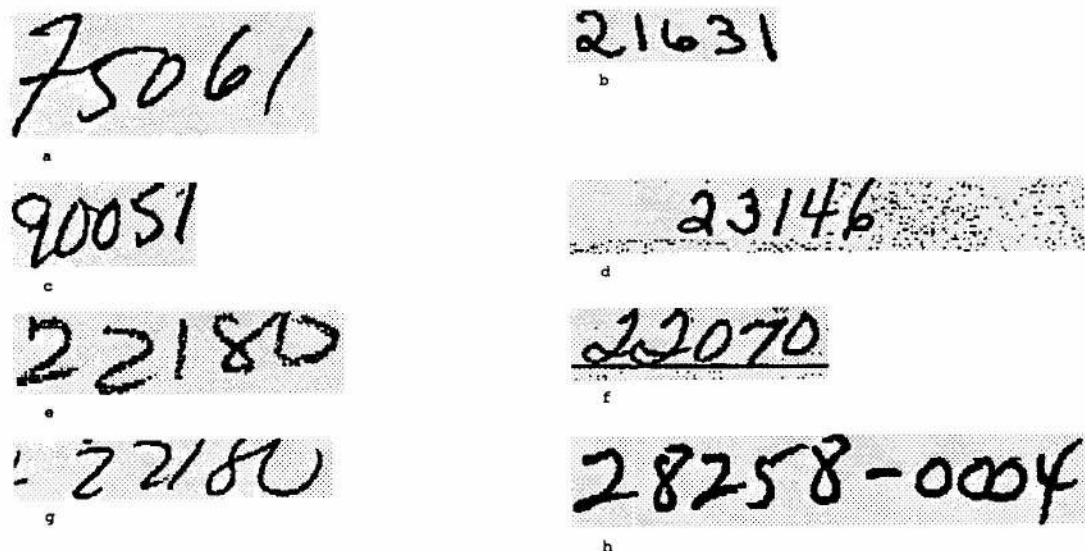 75061
a
21631
b
90051
c
23146
d
22180
e
22070
f
22180
g
28258-0004
h